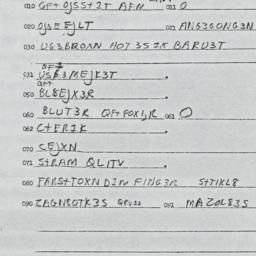 010 GFT OJSST2T AFN 011 O
020 OJSEEJLT 021 ANG3GONG3N
030 UG3BROXN HOT 3S2X BARU3T
GFT
031 USB3MEJK3T
GFT
050 BL8EJX3R
060 BLUT3R OFTPOXIJR 061 O
062 CTFR2K
070 CEJXN
071 STRAM QLITV
080 FARSTTOXN D2N FING3R STTIKL8
090 ZAGNBOTK3S QRUSS 091 MAZOL83S